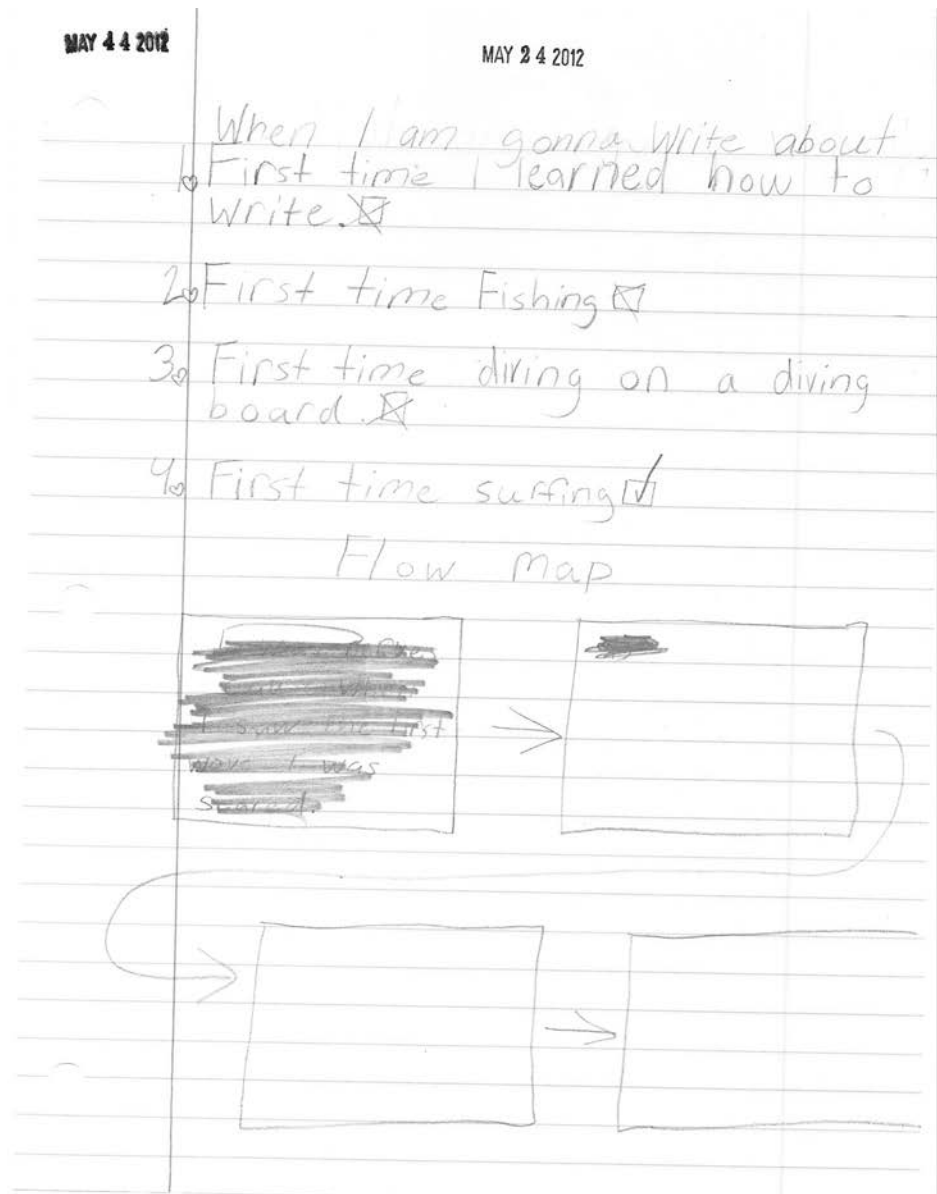 MAY 4 4 2012
MAY 2 4 2012
When I am gonna write about
1. First time I learned how to
write.
2. First time Fishing
3. First time diving on a diving
board.
4. First time surfing
Flow map
I saw the first
wave I was
scared.